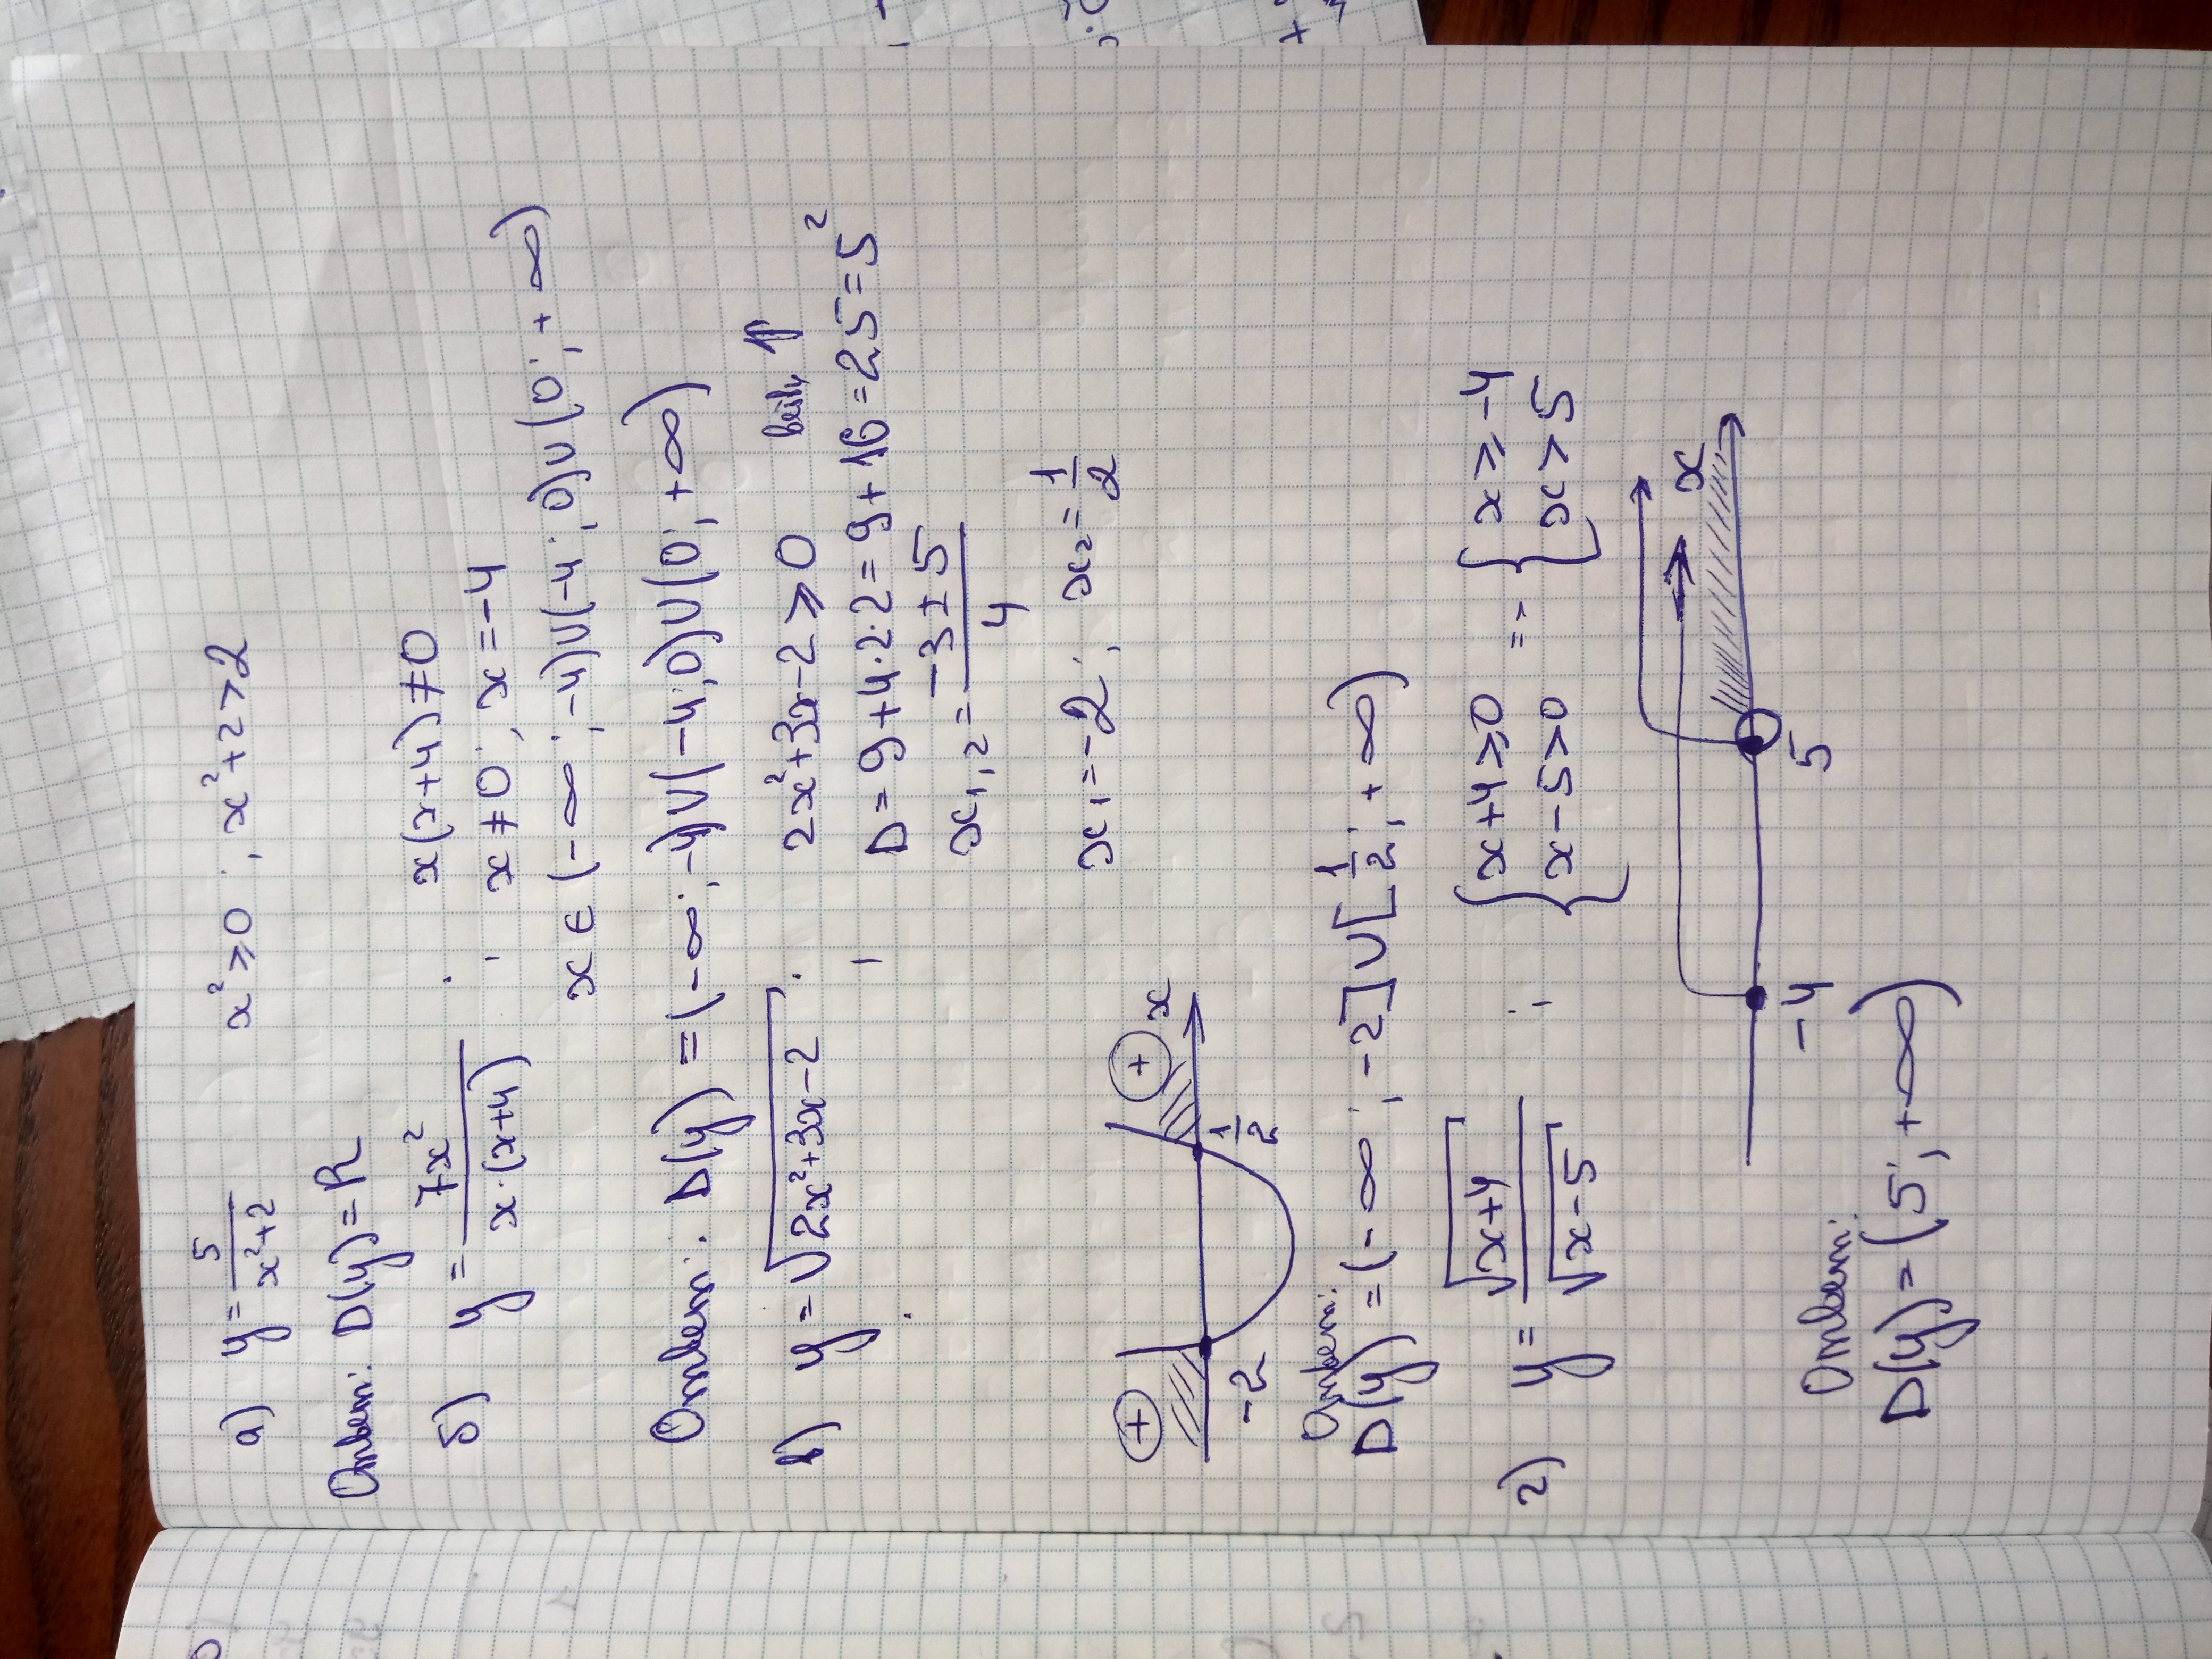 а) y = 5/(x²+2) x² ≥ 0 ; x²+2 > 2
Ответ: D(y) = R
б) y = 7x²/(x·(x+4)) x(x+4) ≠ 0
x ≠ 0 ; x = -4
x ∈ (-∞ ; -4)∪(-4 ; 0)∪(0 ; +∞)
Ответ: D(y) = (-∞ ; -4)∪(-4 ; 0)∪(0 ; +∞)
в) y = √(2x²+3x-2) 2x²+3x-2 ≥ 0 ветв ⇑
D = 9+4·2·2 = 9+16 = 25 = 5²
x₁,₂ = (-3±5)/4
x₁ = -2 ; x₂ = 1/2
+ + x
-2 1/2
Ответ:
D(y) = (-∞ ; -2]∪[1/2 ; +∞)
г) y = √(x+4)/√(x-5) { x+4 ≥ 0 = { x ≥ -4
x-5 > 0 x > 5
x
-4 5
Ответ:
D(y) = (5 ; +∞)